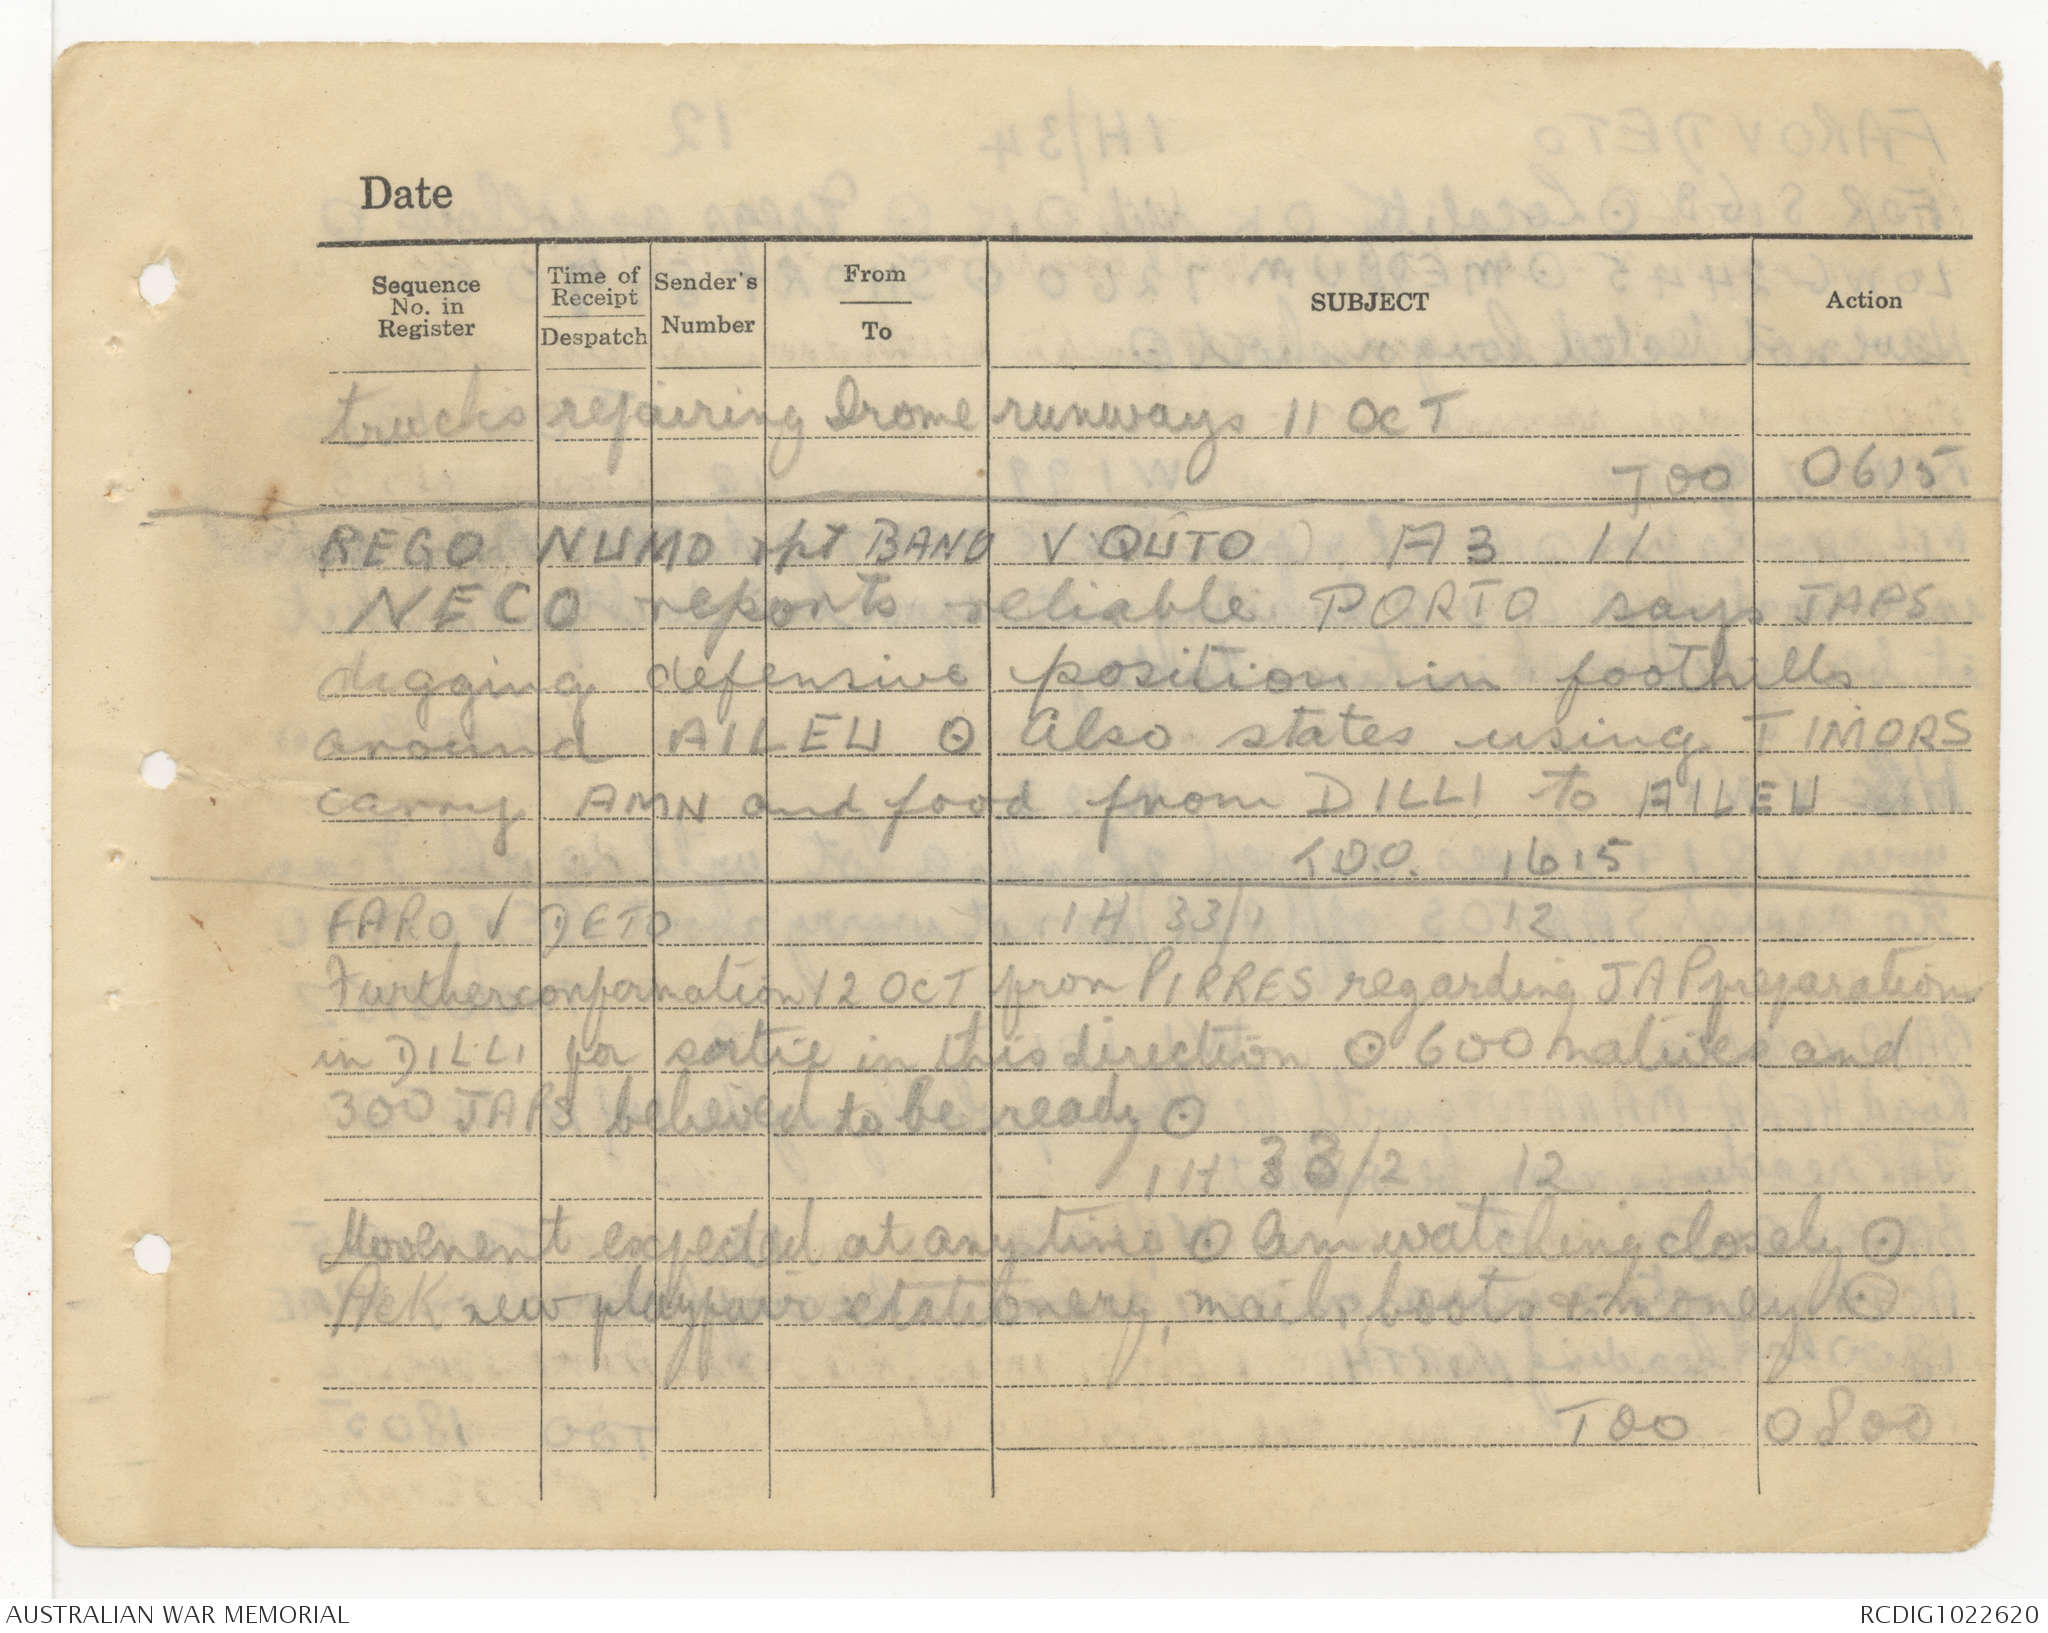 Date
Sequence No. in Register
Time of Receipt
Despatch
Sender's Number
From
To
SUBJECT
Action
trucks repairing Drome runways 11 OCT
TOO 0615
REGO NUMO rpt BANO V QUTO A3 11
NECO reports reliable PORTO says JAPS
digging defensive position in foothills
around AILEU ⊙ Also states using TIMORS
carry AMN and food from DILLI to AILEU
T.O.O. 1615
FARO V DETO 1H 33/1 12
Further conformation 12 OCT from PIRRES regarding JAP preparation
in DILLI for sortie in this direction ⊙ 600 natives and
300 JAPS believed to be ready ⊙
1H 33/2 12
Movement expected at any time ⊙ Am watching closely ⊙
Ack new playpair stationery, mail, boots & money ⊙
TOO 0800
AUSTRALIAN WAR MEMORIAL
RCDIG1022620